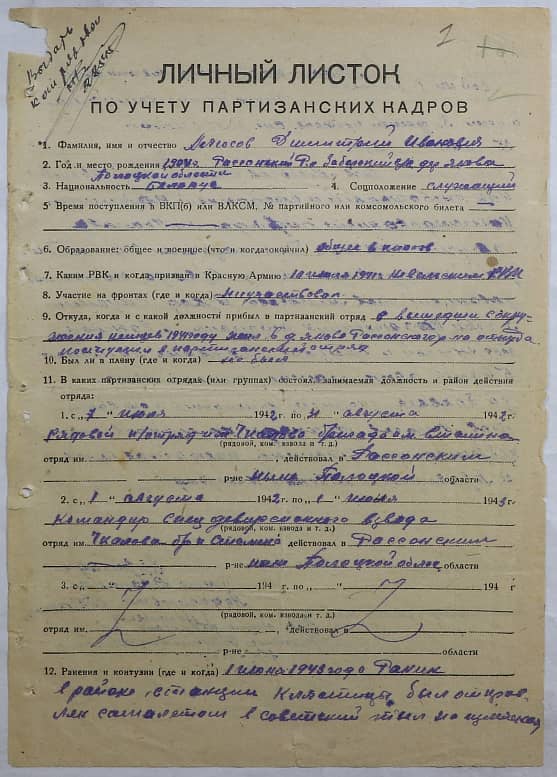 1
ЛИЧНЫЙ ЛИСТОК
ПО УЧЕТУ ПАРТИЗАНСКИХ КАДРОВ
1. Фамилия, имя и отчество Дмитрий Иванович
2. Год и место рождения 1904г. Россонский р-н
Полоцкой области
3. Национальность Белорус 4. Соцположение служащий
5 Время поступления в ВКП(б) или ВЛКСМ, № партийного или комсомольского билета
6. Образование: общее и военное (что и когда окончил) общее 8 классов
7. Каким РВК и когда призван в Красную Армию: 10 июля 1941г. Невельским РВК
8. Участие на фронтах (где и когда) Не участвовал
9. Откуда, когда и с какой должности прибыл в партизанский отряд
1941 году Россонского р-на откуда
партизанский отряд
10. Был ли в плену (где и когда) не был
11. В каких партизанских отрядах (или группах) состоял, занимаемая должность и район действия
отряда:
1. с „7“ июня 1942 г. по „31“ августа 1942г.
Рядовой п/отряд им Чкалова бригада им Сталина
(рядовой, ком. взвода и т. д.)
отряд им. , действовал в Россонским
р-не ныне Полоцкой области
2. с „1“ августа 1942г. по „1“ июня 1943г.
Командир спец диверсионного взвода
(рядовой, ком. взвода и т. д.)
отряд им. Чкалова бр-а Сталина действовал в Россонским
р-не Полоцкой облас области
3. с „ “ 194 г по „ “ 194 г
(рядовой, ком. взвода и т. д.)
отряд им. , действовал в
р-не области
12. Ранения и контузии (где и когда) 1 июня 1943 года Ранен
в районе станции Клястицы был отправ
лен самолетом в советский тыл на